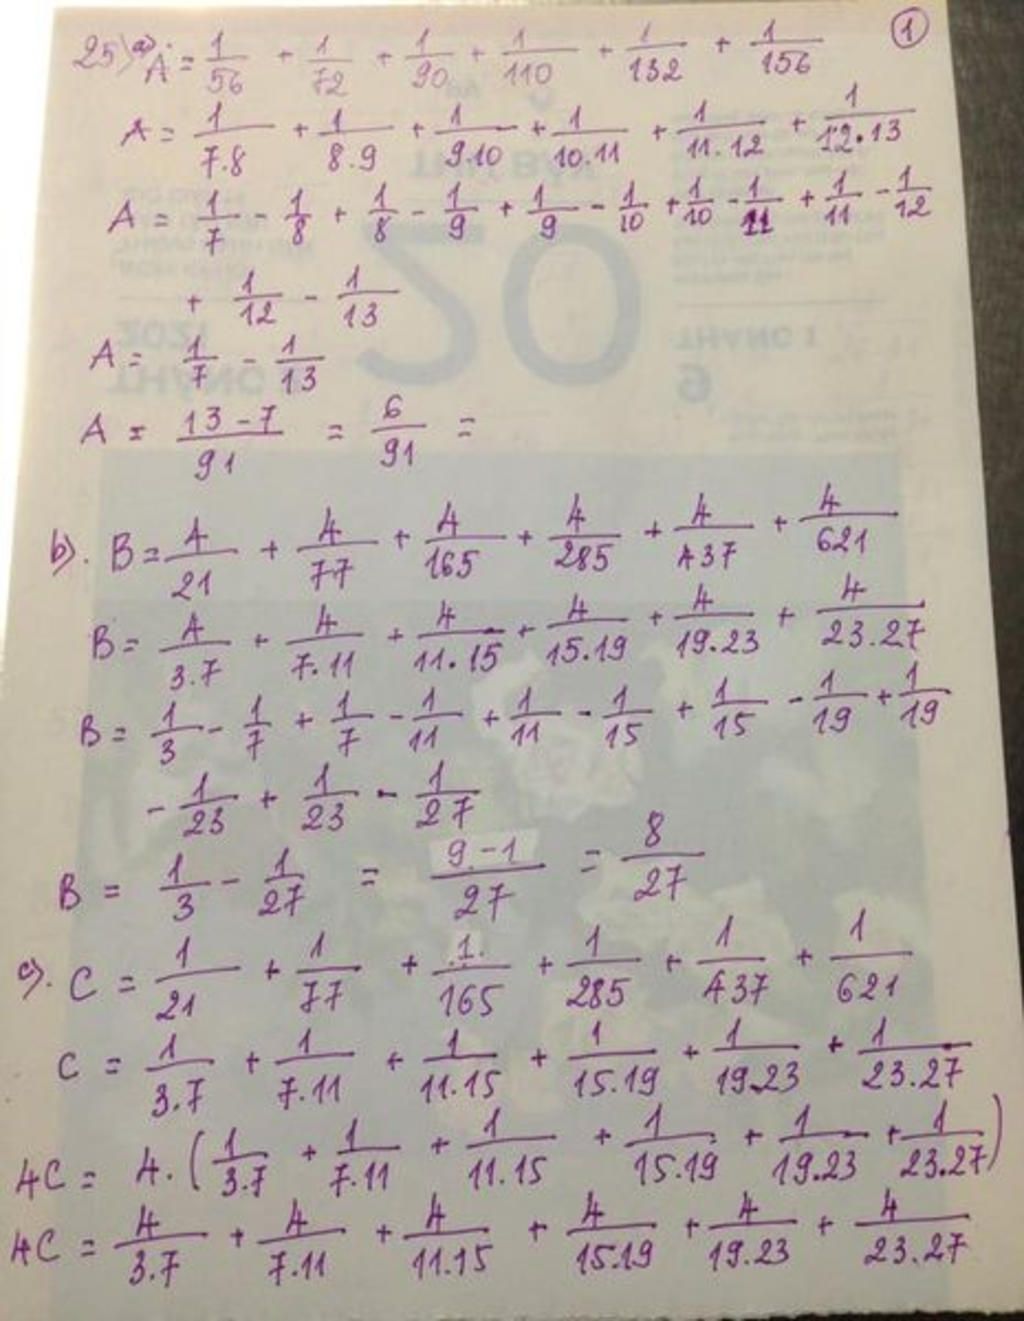 ①
25) a) A = 1/56 + 1/72 + 1/90 + 1/110 + 1/132 + 1/156
A = 1/7.8 + 1/8.9 + 1/9.10 + 1/10.11 + 1/11.12 + 1/12.13
A = 1/7 - 1/8 + 1/8 - 1/9 + 1/9 - 1/10 + 1/10 - 1/11 + 1/11 - 1/12
+ 1/12 - 1/13
A = 1/7 - 1/13
A = 13-7/91 = 6/91 =
b). B = 4/21 + 4/77 + 4/165 + 4/285 + 4/437 + 4/621
B = 4/3.7 + 4/7.11 + 4/11.15 + 4/15.19 + 4/19.23 + 4/23.27
B = 1/3 - 1/7 + 1/7 - 1/11 + 1/11 - 1/15 + 1/15 - 1/19 + 1/19
- 1/23 + 1/23 - 1/27
B = 1/3 - 1/27 = 9-1/27 = 8/27
c). C = 1/21 + 1/77 + 1/165 + 1/285 + 1/437 + 1/621
C = 1/3.7 + 1/7.11 + 1/11.15 + 1/15.19 + 1/19.23 + 1/23.27
4C = 4. (1/3.7 + 1/7.11 + 1/11.15 + 1/15.19 + 1/19.23 + 1/23.27)
4C = 4/3.7 + 4/7.11 + 4/11.15 + 4/15.19 + 4/19.23 + 4/23.27